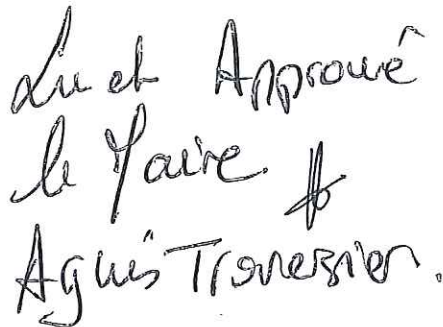 Lu et Approuvé
le Maire
Agnès Traversier.